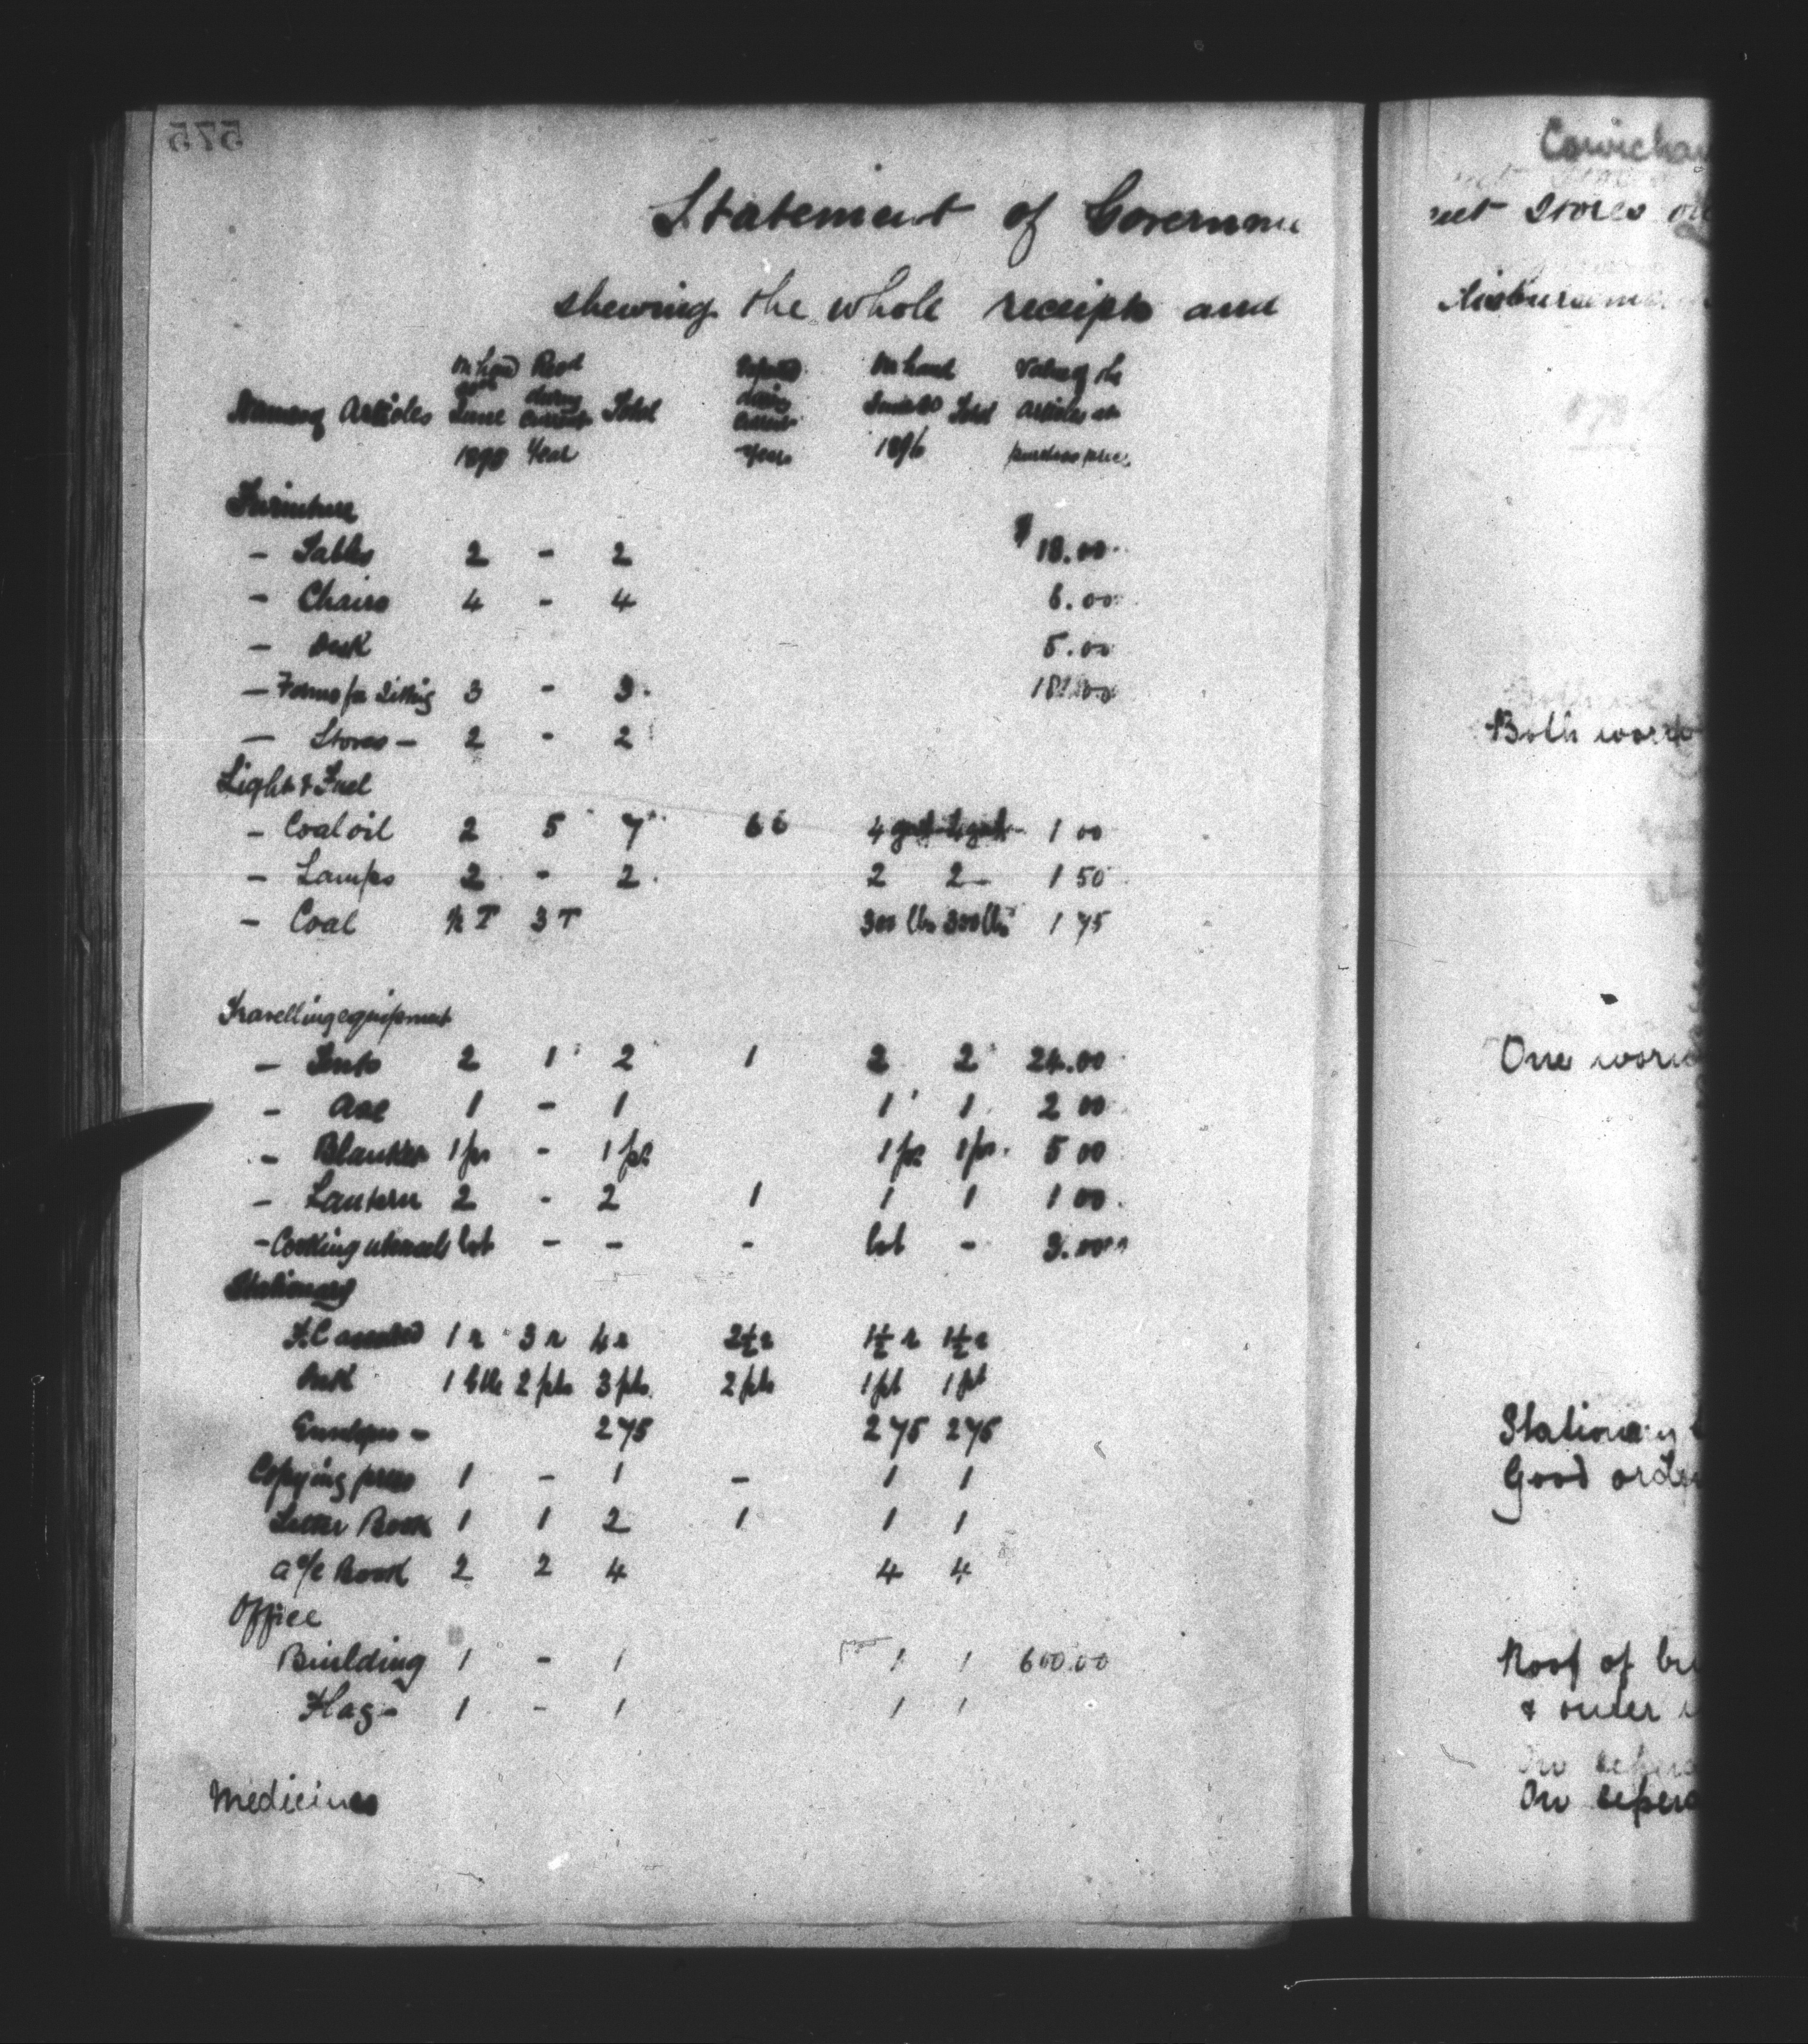 575
Statement of Governme
shewing the whole receipts and
On hand Recd On hand Value of the
during during
Name of Articles June current Total current June 30 Total Articles at
Year Year 1896 purchase price
Furniture
- Tables 2 - 2 $ 18.00
- Chairs 4 - 4 6.00
- Desk 5.00
- Forms for Sitting 3 - 3
- Stoves - 2 - 2
Light & Fuel
- Coal oil 2 5 7 1 00
- Lamps 2 - 2 2 2 - 1 50
- Coal ½ T 3 T 300 lbs 300 lbs 1 75
Travelling equipment
- Tents 2 1 2 1 2 2 24.00
- Axe 1 - 1 1 1 2 00
- Blankets 1 pr - 1 pr 1 pr 1 pr 5 00
- Lantern 2 - 2 1 1 1 1 00
- Cooking utensils lot - - - lot - 3.00
Stationary
F.C 1 r 3 r 4 r 2½ r 1½ r 1½ r
Ink 1 btle 2 pts 3 pts 2 pts 1 pt 1 pt
Envelopes - 275 275 275
Copying press 1 - 1 - 1 1
Letter Book 1 1 2 1 1 1
a/c Book 2 2 4 4 4
Office
Building 1 - 1 1 1 600.00
Flag - 1 - 1 1 1
Medicines
Cowichan
ent Stores
disburseme
Both wor
One wor
Stationary
Good order
Roof of bu
& outer
On
On